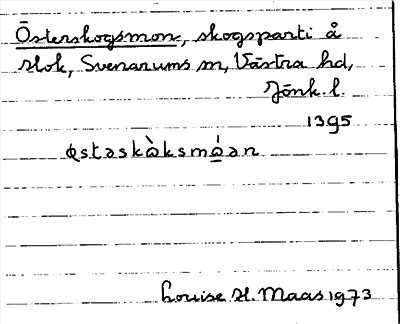 Österskogsmon, skogsparti å
slok, Svenarums sn, Västra hd,
Jönk. l.
1395
østəskὼksmώən
Louise H. Maas 1973